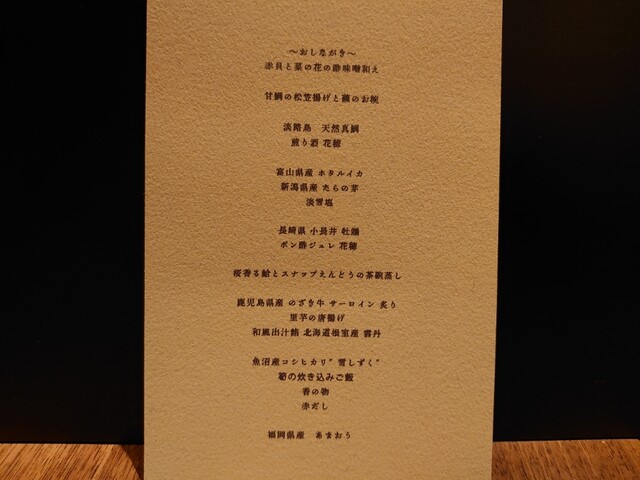 ～おしながき～
赤貝と菜の花の酢味噌和え
甘鯛の松笠揚げと蕪のお椀
淡路島 天然真鯛
煎り酒 花穂
富山県産 ホタルイカ
新潟県産 たらの芽
淡雪塩
長崎県 小長井 牡蠣
ポン酢ジュレ 花穂
桜香る蛤とスナップえんどうの茶碗蒸し
鹿児島県産 のざき牛 サーロイン 炙り
里芋の唐揚げ
和風出汁餡 北海道根室産 雲丹
魚沼産コシヒカリ"雪しずく"
筍の炊き込みご飯
香の物
赤だし
福岡県産 あまおう